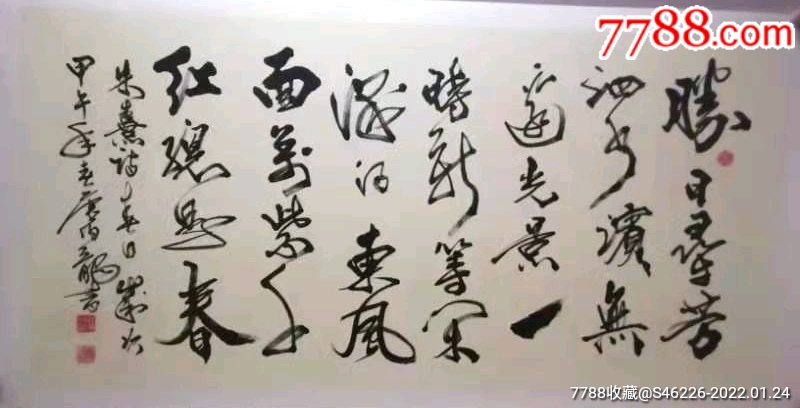 7788.com
勝日尋芳
泗水濱無
邊光景一
時新等閒
識得東風
面萬紫千
紅總是春
朱熹詩春日歲次
甲午年春龍書
7788收藏@S46226-2022.01.24